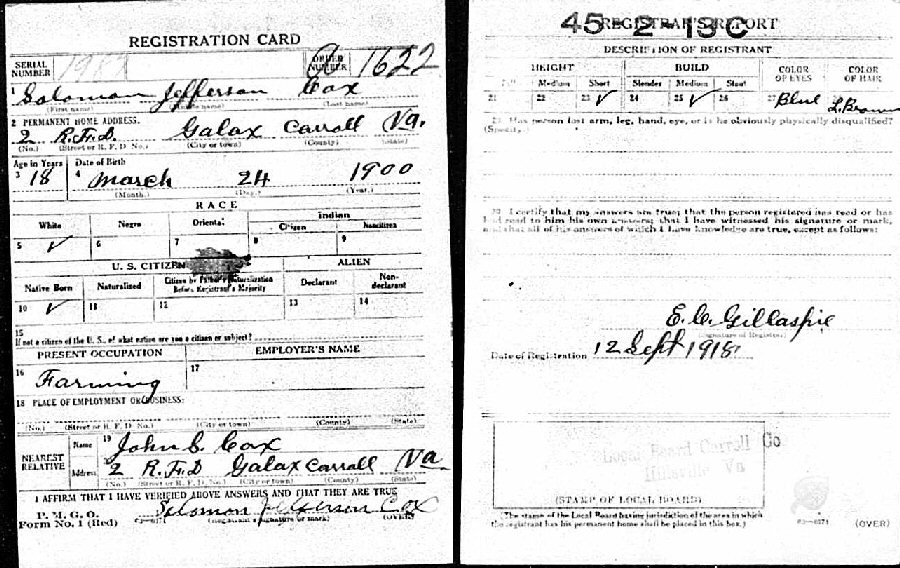 REGISTRATION CARD
SERIAL NUMBER 1987 ORDER NUMBER A 1622
1 Solomon Jefferson Cox
(First name) (Middle name) (Last name)
2 PERMANENT HOME ADDRESS:
2 R.F.D. Galax Carroll Va.
(No.) (Street or R. F. D. No.) (City or town) (County) (State)
Age in Years Date of Birth
3 18 4 March 24 1900
(Month.) (Day.) (Year.)
RACE
White Negro Oriental Indian
Citizen Noncitizen
5 ✓ 6 7 8 9
U. S. CITIZEN ALIEN
Native Born Naturalized Citizen by Father's Naturalization Before Registrant's Majority Declarant Non-declarant
10 ✓ 11 12 13 14
15
If not a citizen of the U. S., of what nation are you a citizen or subject?
PRESENT OCCUPATION EMPLOYER'S NAME
16 Farming 17
18 PLACE OF EMPLOYMENT OR BUSINESS:
(No.) (Street or R. F. D. No.) (City or town) (County) (State)
NEAREST RELATIVE Name 19 John C. Cox
Address 2 R.F.D Galax Carroll Va
(No.) (Street or R. F. D. No.) (City or town) (County) (State)
I AFFIRM THAT I HAVE VERIFIED ABOVE ANSWERS AND THAT THEY ARE TRUE
P. M. G. O.
Form No. 1 (Red) Solomon Jefferson Cox
(Registrant's signature or mark) (OVER)
45-2-13 C
REGISTRAR'S REPORT
DESCRIPTION OF REGISTRANT
HEIGHT BUILD COLOR OF EYES COLOR OF HAIR
Medium Short Slender Medium Stout
21 22 23 ✓ 24 25 ✓ 26 27 Blue L. Brown
29 Has person lost arm, leg, hand, eye, or is he obviously physically disqualified?
(Specify.)
30 I certify that my answers are true; that the person registered has read or has
had read to him his own answers; that I have witnessed his signature or mark,
and that all of his answers of which I have knowledge are true, except as follows:
E. C. Gillaspie
(Signature of Registrar)
Date of Registration 12 Sept 1918
Local Board Carroll Co
Hillsville Va
(STAMP OF LOCAL BOARD)
(The stamp of the Local Board having jurisdiction of the area in which
the registrant has his permanent home shall be placed in this box.)
(OVER)